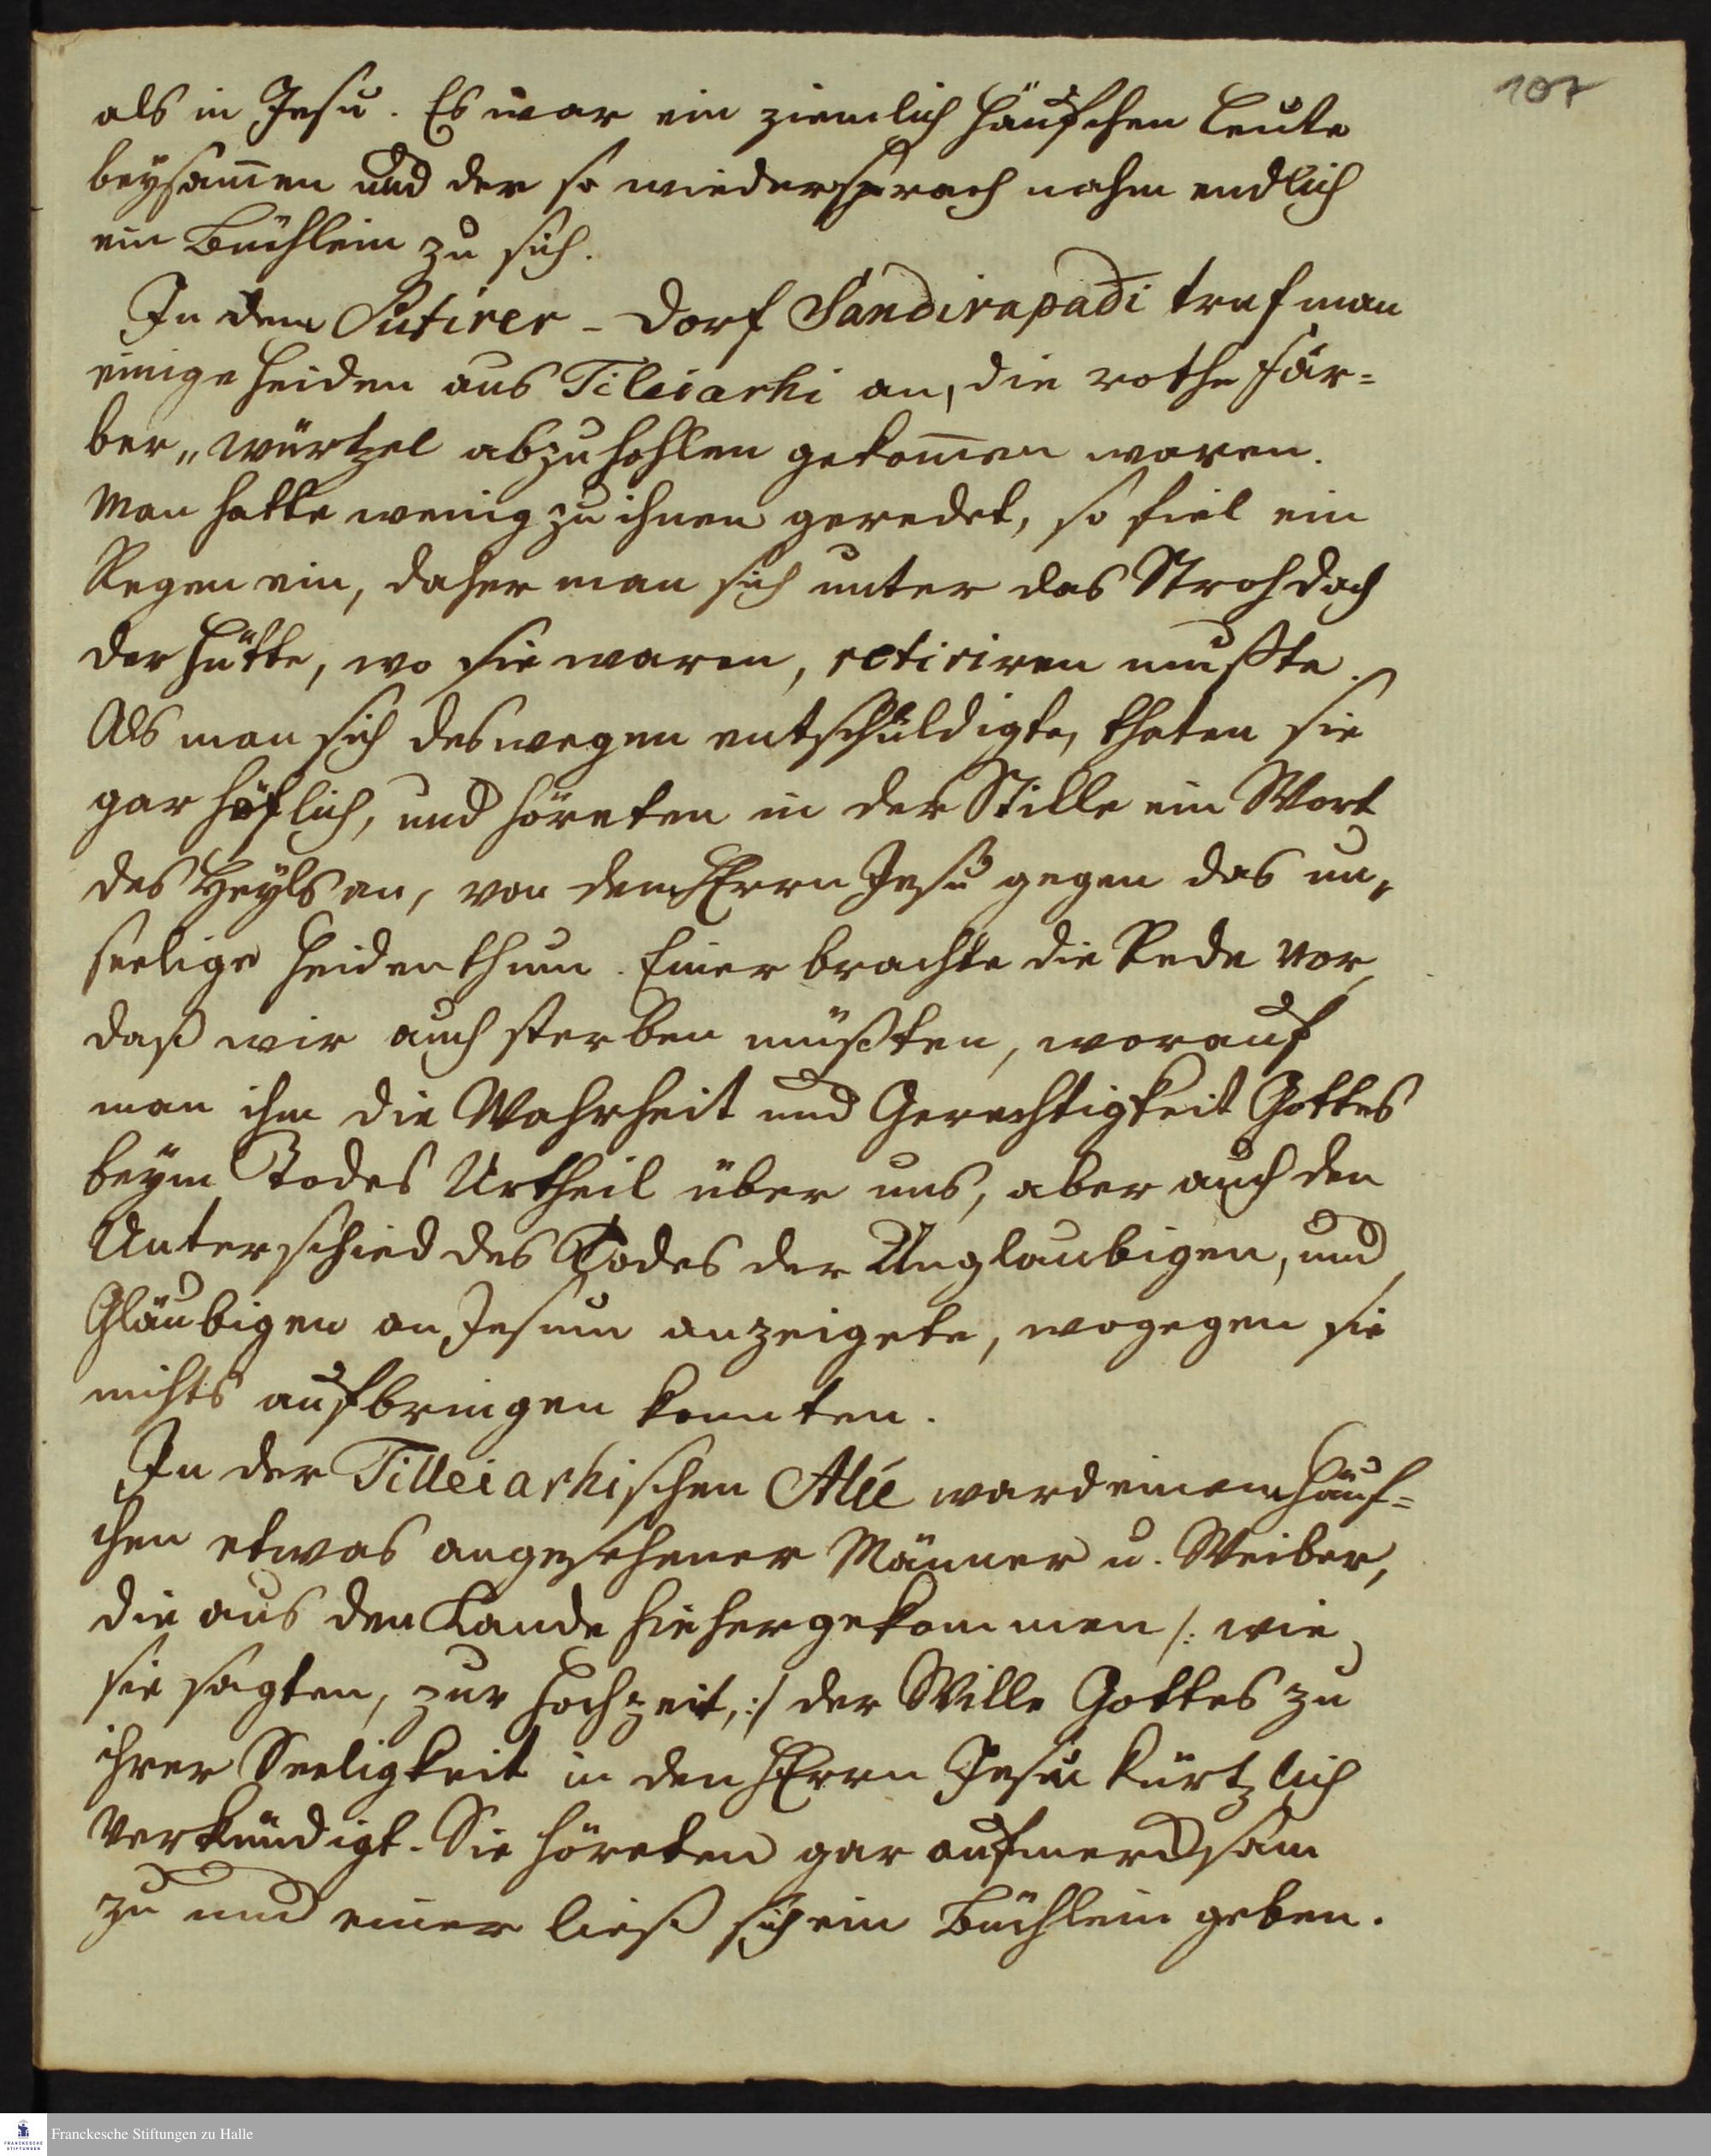 107
als in Jesu. Es war ein ziemlich Häufchen Leute
beysam̄en und der so wiedersprach nahm endlich
ein Büchlein zu sich.
In dem Sutirer-Dorf Sandirapadi traf man
einige Heiden aus Tileiarhi an, die rothe Fär=
ber„würtzel abzuhohlen gekom̄en waren.
Man hatte wenig zu ihnen geredet, so fiel ein
Regen ein, daher man sich unter das Strohdach
der Hütte, wo sie waren, retiriren mußte.
Als man sich deswegen entschuldigte, thaten sie
gar höflich, und höreten in der Stille ein Wort
des Heyls an, von dem HErrn Jesu gegen das un„
seelige Heidenthum. Einer brachte die Rede vor,
daß wir auch sterben müßten, worauf
man ihm die Wahrheit und Gerechtigkeit Gottes
beym Todes Urtheil über uns, aber auch den
Unterschied des Todes der Unglaubigen, und
Gläubigen an Jesum anzeigete, wogegen sie
nichts aufbringen konnten.
In der Tilleiarhischen Alée ward einem Häuf=
chen etwas angesehener Männer u. Weiber,
die aus dem Lande hieher gekommen /: wie
sie sagten, zur Hochzeit, :/ der Wille Gottes zu
ihrer Seeligkeit in den HErrn Jesu kürtzlich
verkündigt. Sie höreten gar aufmercksam
zu und einer ließ sich ein Büchlein geben.
FRANCKESCHE STIFTUNGEN
Franckesche Stiftungen zu Halle